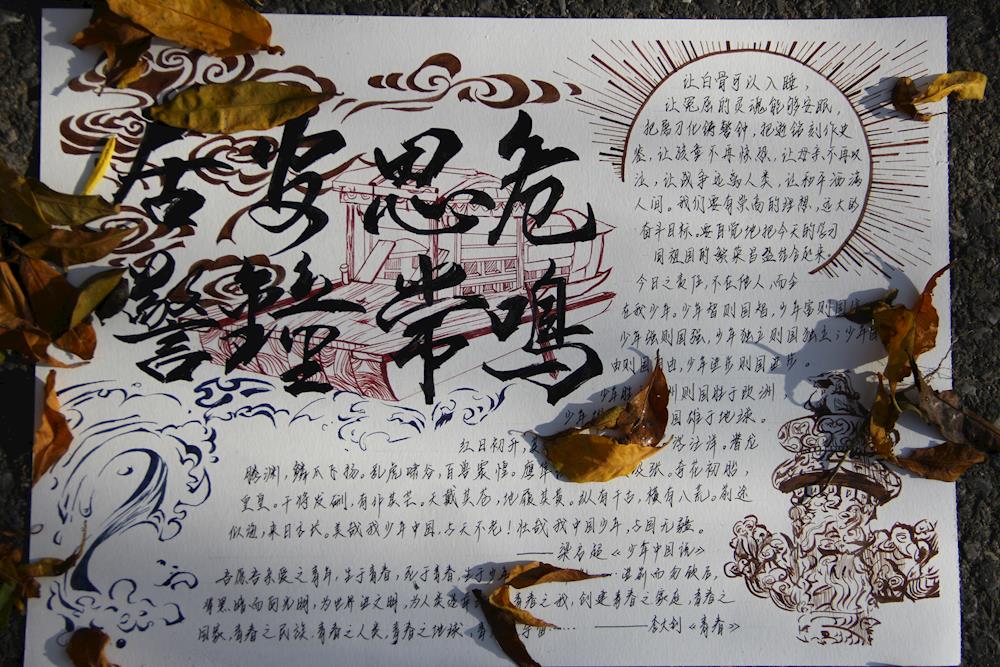 居安思危
警钟常鸣
让白骨可以入睡，
让冤屈的灵魂能够安眠，
把屠刀化铸警钟，把逝名刻作史
鉴，让孩童不再惊恐，让母亲不再叹
泣，让战争远离人类，让和平洒满
人间。我们要有崇高的理想，远大的
奋斗目标。要自觉地把今天的学习
同祖国的繁荣昌盛结合起来
今日之责任，不在他人，而全
在我少年。少年智则国智，少年富则国
少年强则国强，少年独立则国独立；少年
由则国自由，少年进步则国进步。
少年胜 洲则国胜于欧洲
少年 国雄于地球。
红日初升， 洋。潜龙
腾渊，鳞爪飞扬。乳虎啸谷，百兽震惶。鹰隼 张。奇花初胎，
皇皇。干将发硎，有作其芒。天戴其苍，地履其黄。纵有千古，横有八荒。前途
似海，来日方长。美哉我少年中国，与天不老！壮哉我中国少年，与国无疆。
——梁启超《少年中国说》
吾愿吾亲爱之青年，生于青春，死于青春，生于少年 前而勿顾后，
背黑暗而向光明，为世界进文明，为人类造 青春之我，创建青春之家庭，青春之
国家，青春之民族，青春之人类，青春之地球，青 宇宙 ——李大钊《青春》